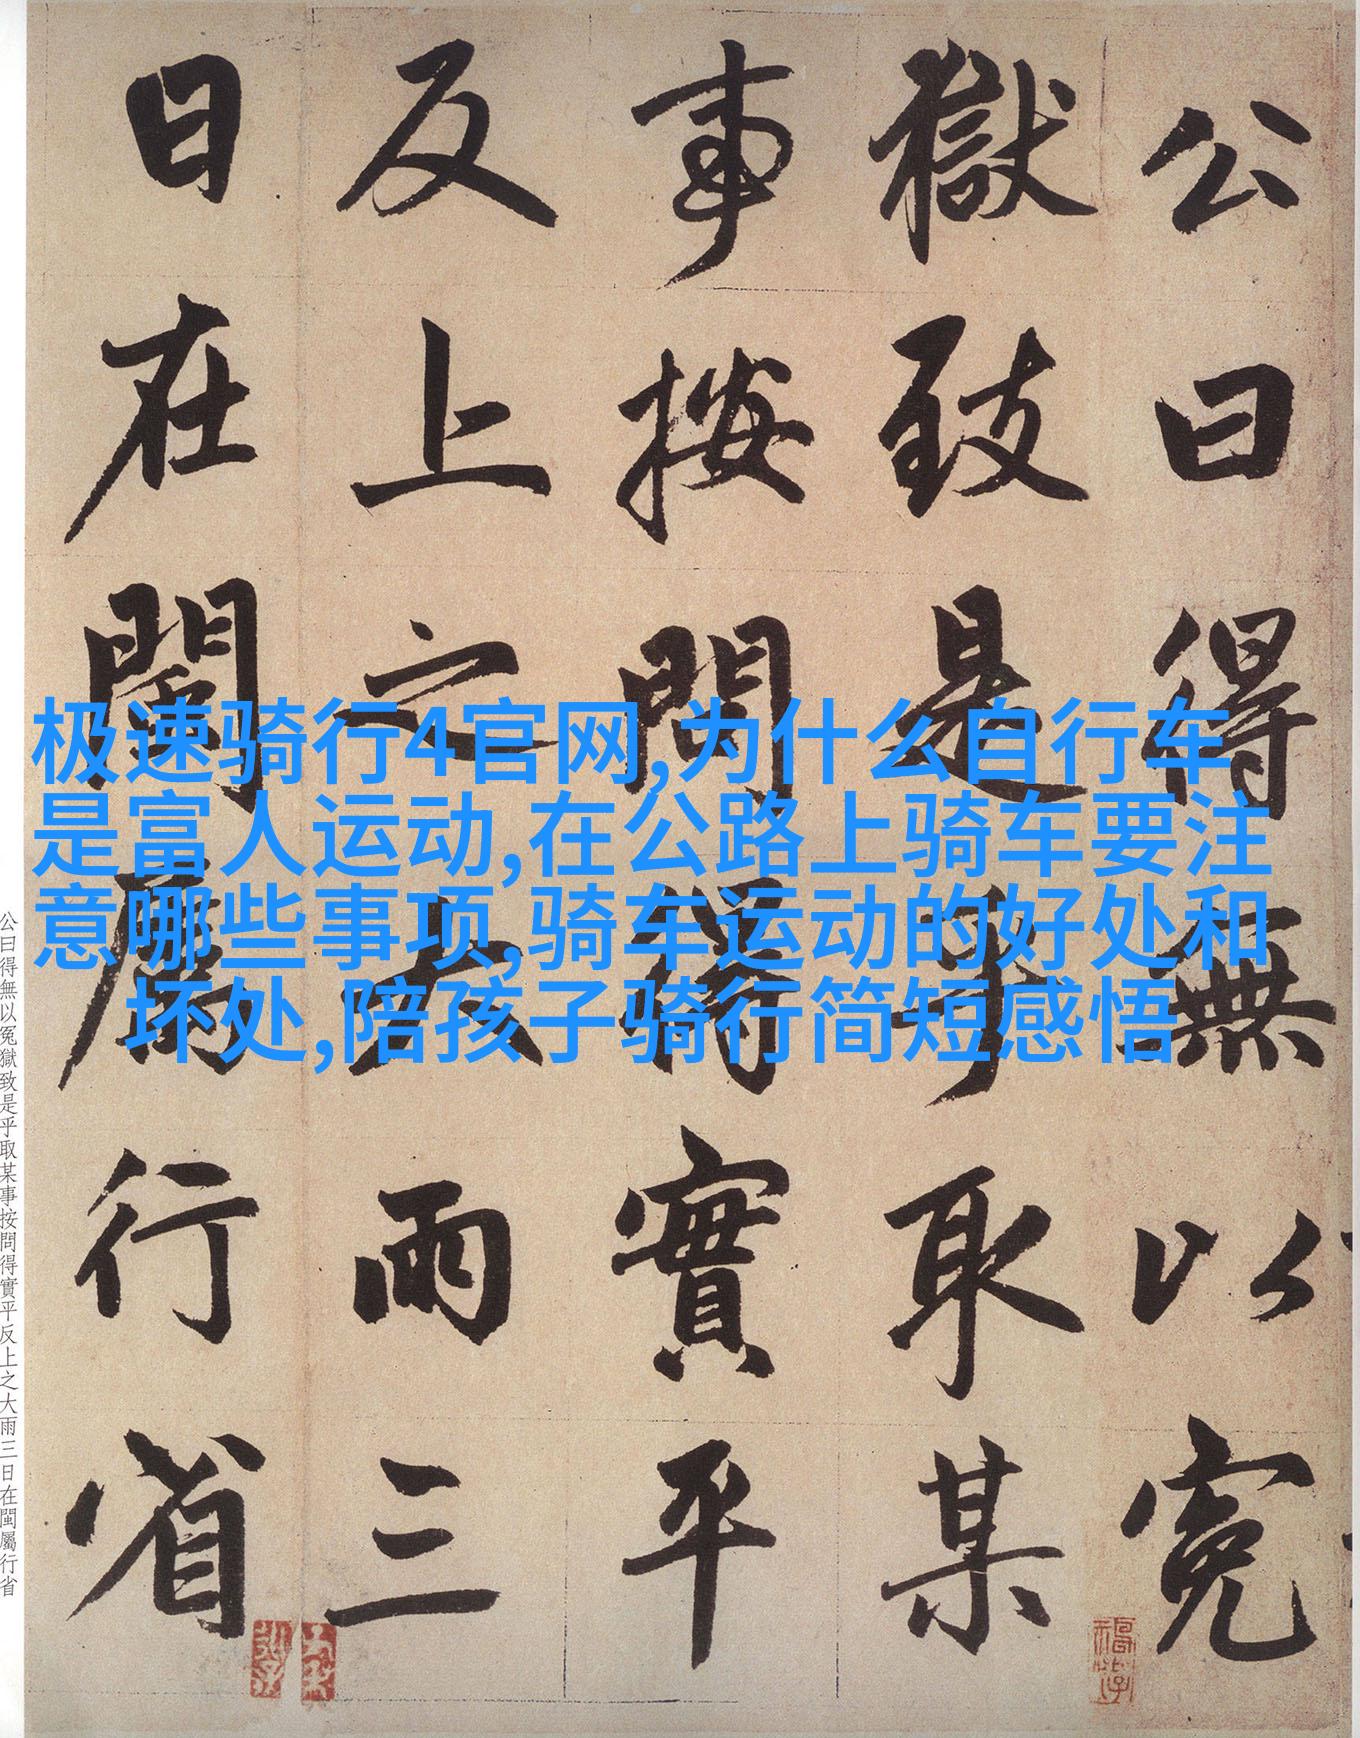 公曰得無以冤
獄致是乎取某
事按問得實平
反上之大雨三
日在閩屬行省
极速骑行4官网,为什么自行车
是富人运动,在公路上骑车要注
意哪些事项,骑车运动的好处和
坏处,陪孩子骑行简短感悟
公曰得無以冤獄致是乎取某事按問得實平反上之大雨三日在閩屬行省